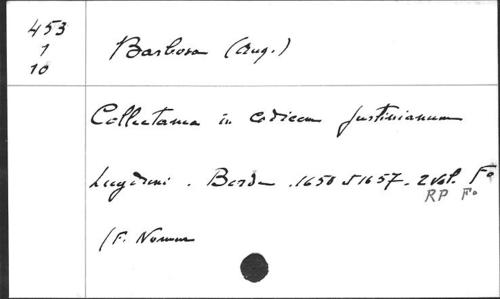 453
1
10
Barbosa (Aug.)
Collectanea in codicem Justinianum
Lugduni . Borde . 1650 & 1657 . 2 vol. Fº
RP Fº
(F.